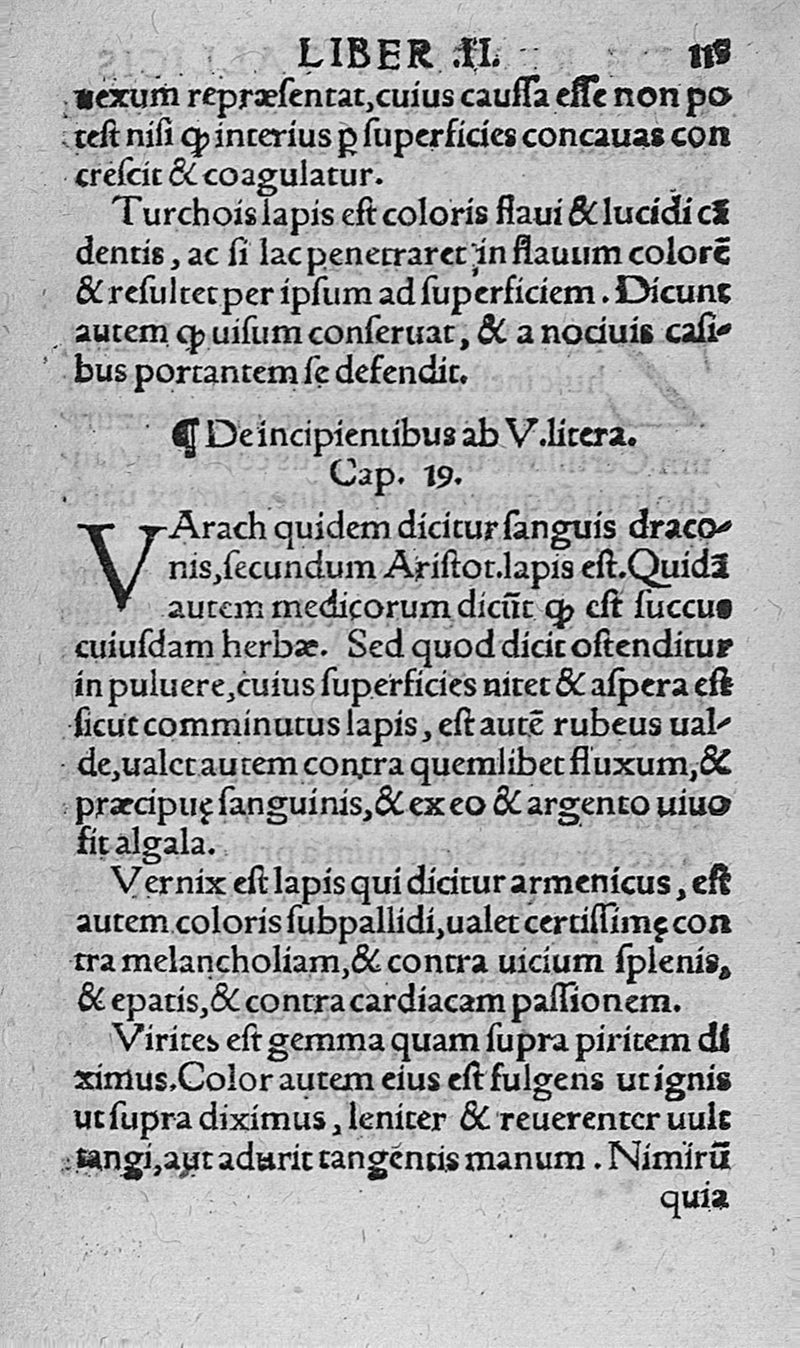 LIBER .II. 118
uexum repræſentat,cuius cauſſa eſſe non po
teſt niſi ꝙ interius ꝑ ſuperficies concauas con
creſcit & coagulatur.
Turchois lapis eſt coloris flaui & lucidi cã
dentis, ac ſi lac penetraret in flauum colorẽ
& reſultet per ipſum ad ſuperficiem. Dicunt
autem ꝙ uiſum conſeruat, & a nociuis caſi-
bus portantem ſe defendit.
¶ De incipientibus ab V.litera.
Cap. 19.
VArach quidem dicitur ſanguis draco-
nis,ſecundum Ariſtot.lapis eſt.Quidã
autem medicorum dicũt ꝙ eſt ſuccus
cuiuſdam herbæ. Sed quod dicit oſtenditur
in puluere,cuius ſuperficies nitet & aſpera eſt
ſicut comminutus lapis, eſt autẽ rubeus ual-
de,ualet autem contra quemlibet fluxum,&
præcipuę ſanguinis,& ex eo & argento uiuo
fit algala.
Vernix eſt lapis qui dicitur armenicus, eſt
autem coloris ſubpallidi,ualet certiſſimę con
tra melancholiam,& contra uicium ſplenis,
& epatis,& contra cardiacam paſſionem.
Virites eſt gemma quam ſupra piritem di
ximus.Color autem eius eſt fulgens ut ignis
ut ſupra diximus, leniter & reuerenter uult
tangi,aut adurit tangentis manum. Nimirũ
quia